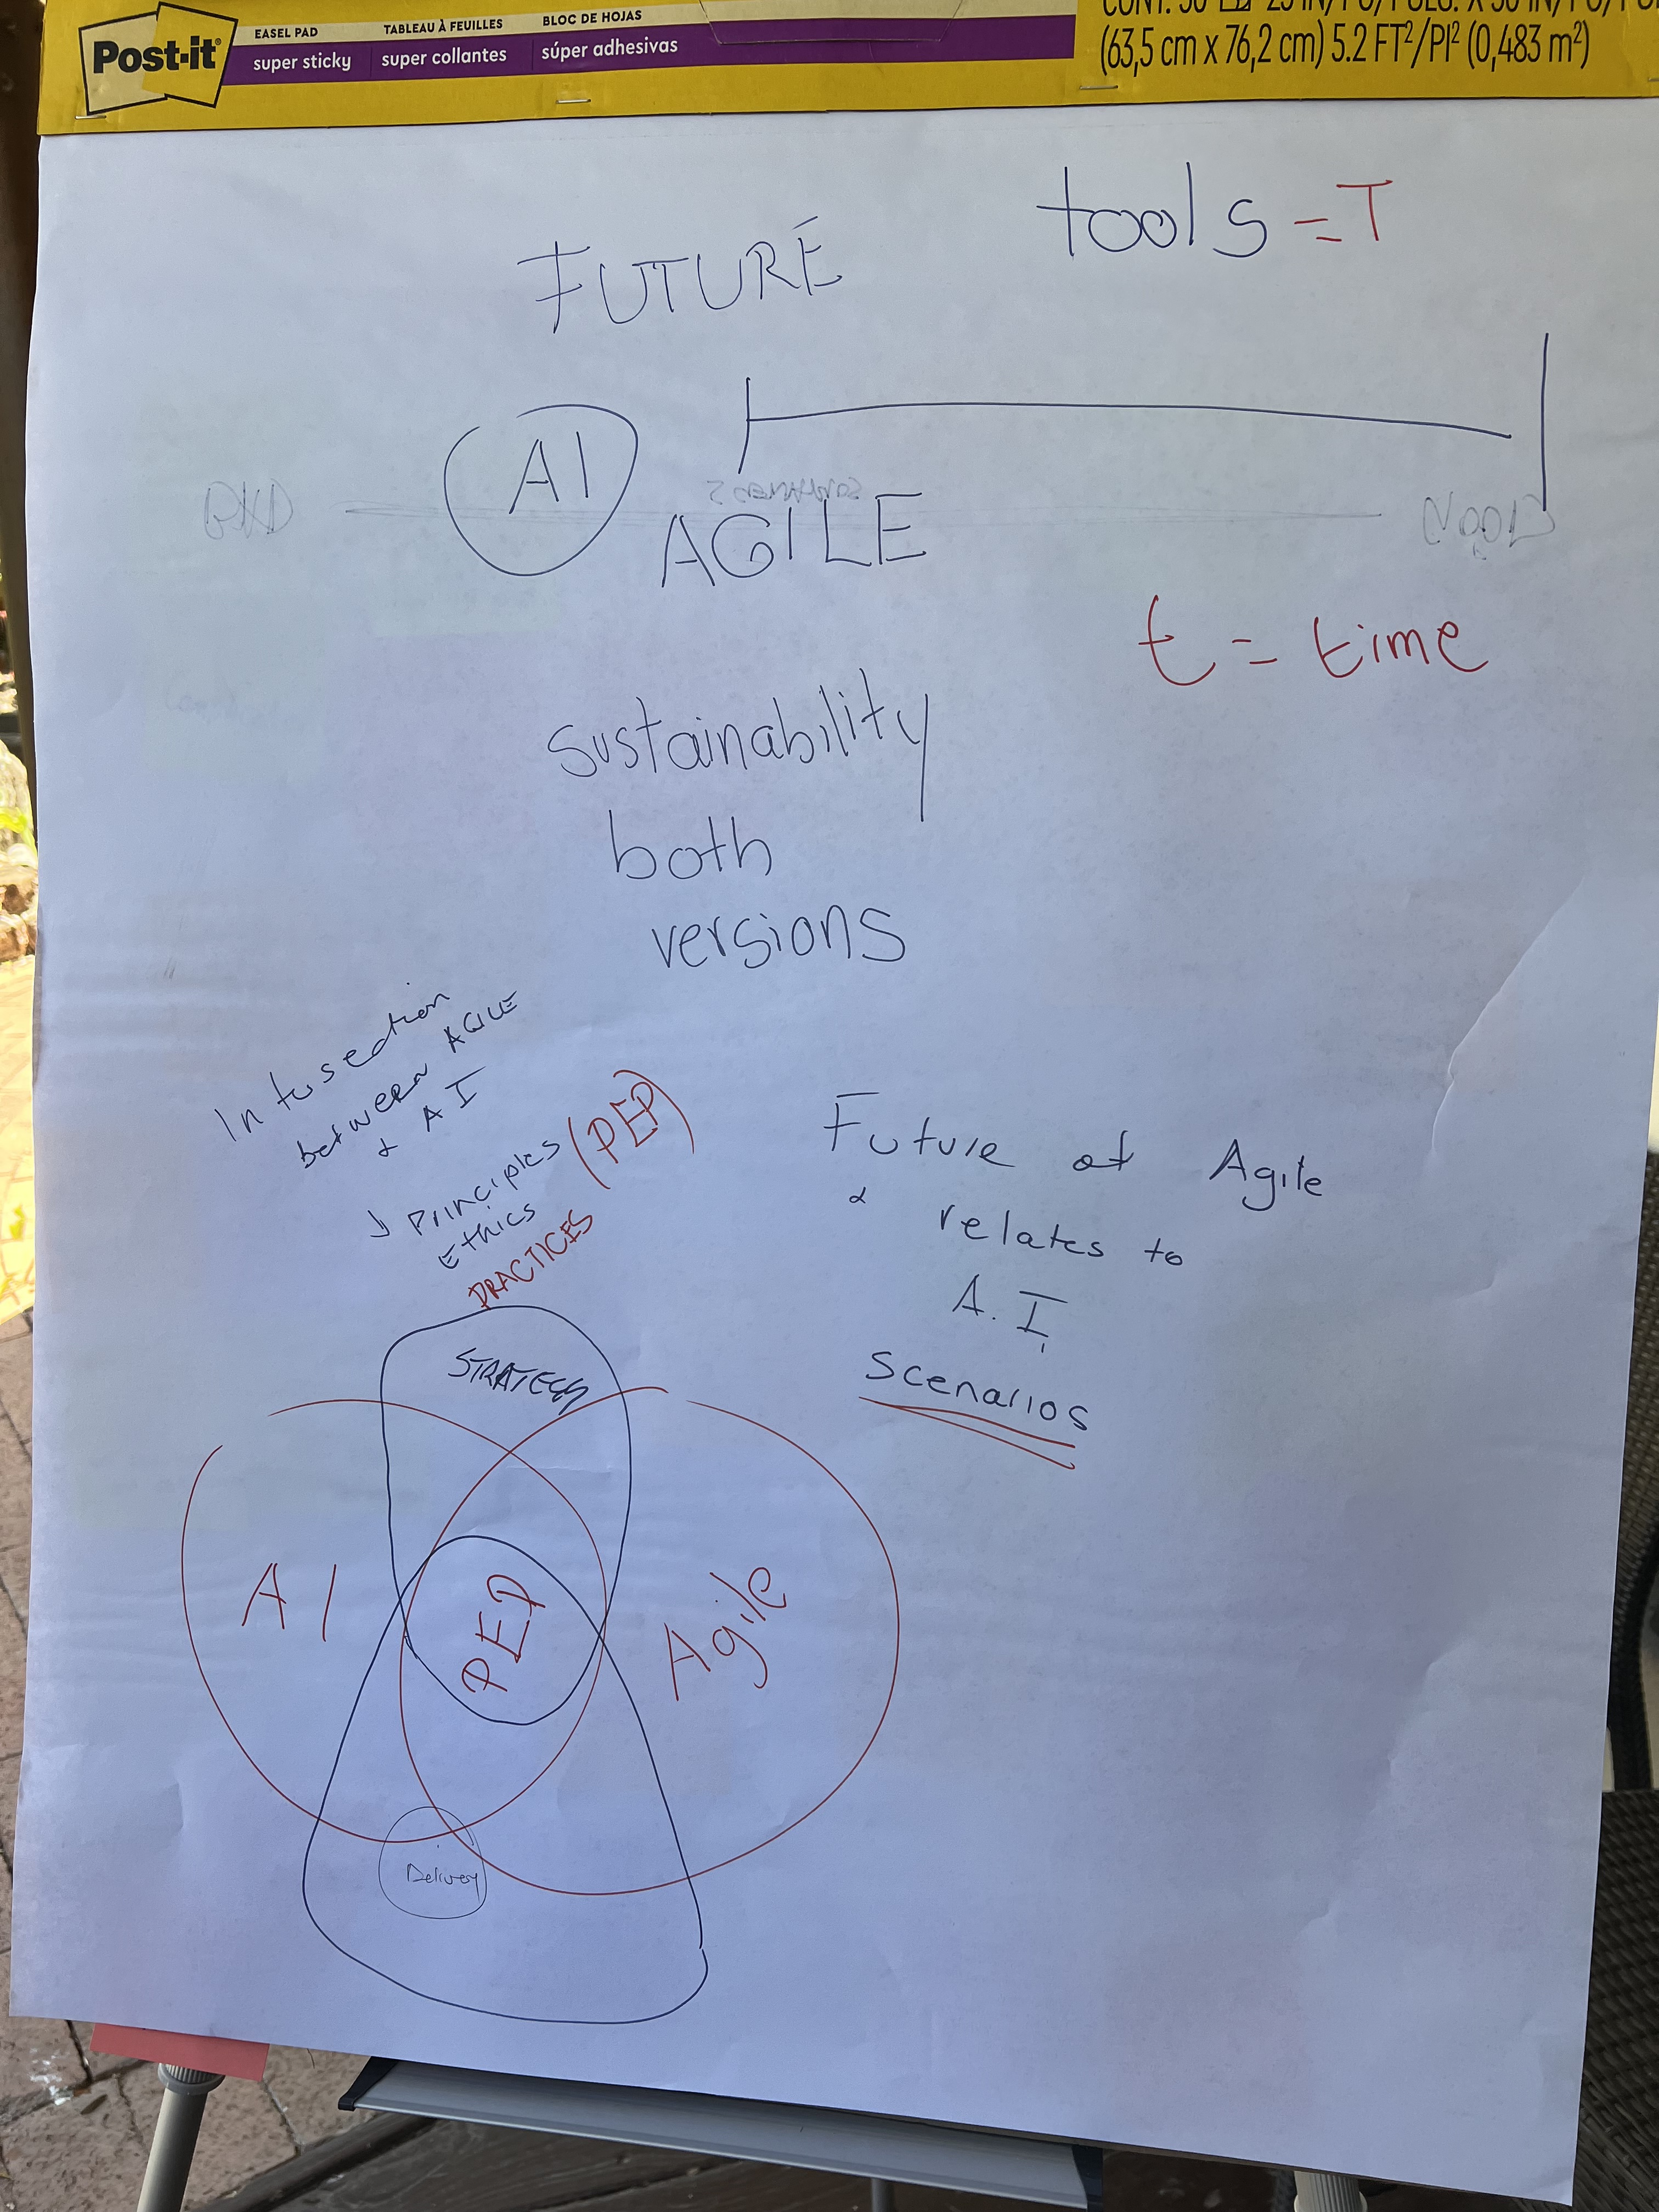 Post-it
EASEL PAD
super sticky
TABLEAU À FEUILLES
super collantes
BLOC DE HOJAS
súper adhesivas
(63,5 cm x 76,2 cm) 5.2 FT²/PI² (0,483 m²)
tools = T
FUTURE
AI
AGILE
t = time
sustainability
both
versions
Intersection
between AGILE
& AI
Principles (PEP)
Ethics
PRACTICES
Future of Agile
& relates to
A.I.
Scenarios
STRATEGY
AI
PEP
Agile
Delivery